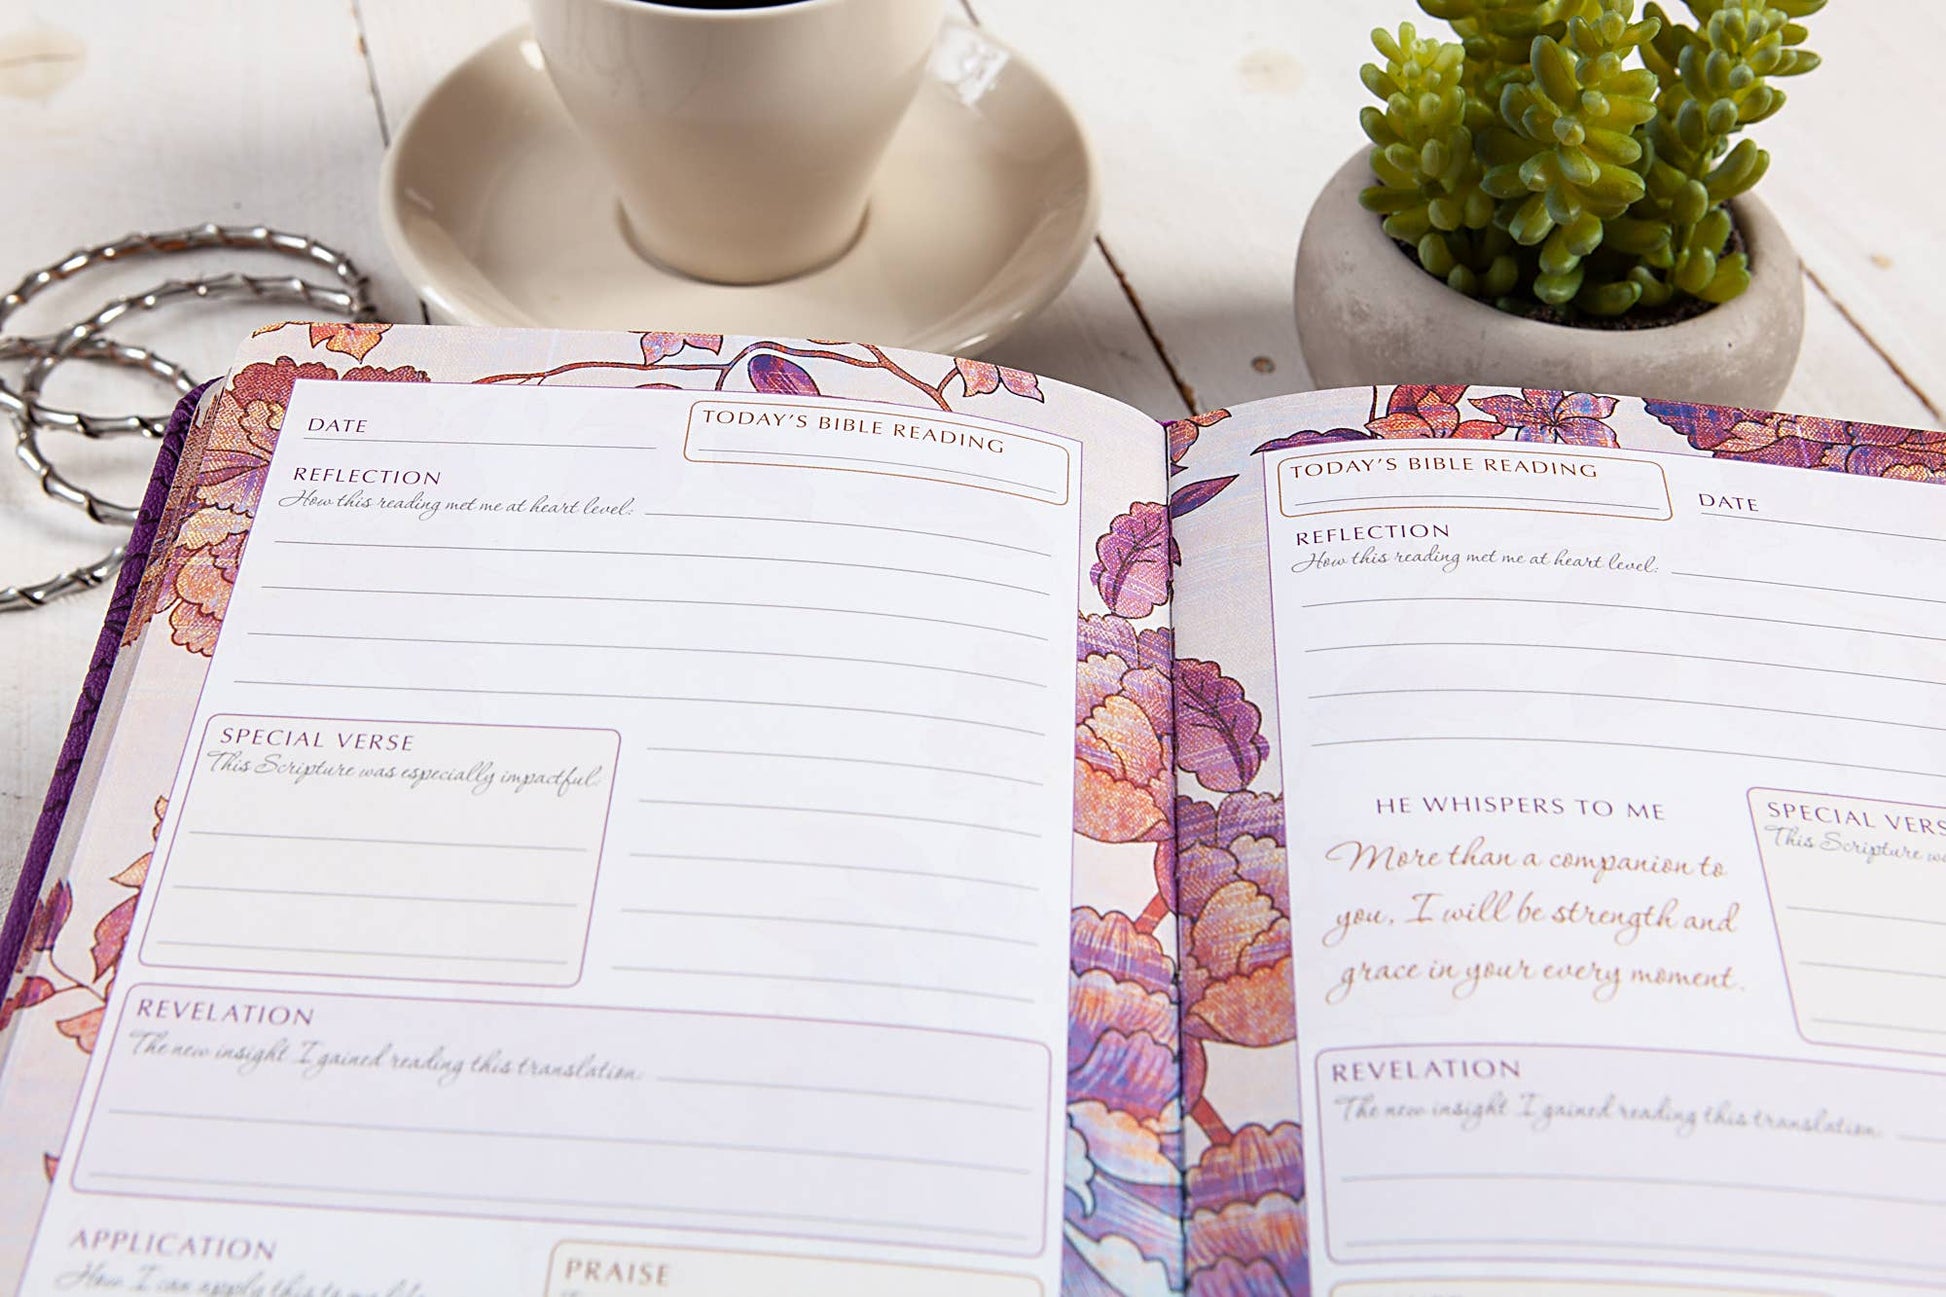 DATE
TODAY'S BIBLE READING
REFLECTION
How this reading met me at heart level:
SPECIAL VERSE
This Scripture was especially impactful:
REVELATION
The new insight I gained reading this translation:
APPLICATION
How I can apply this to my life
PRAISE
TODAY'S BIBLE READING
DATE
REFLECTION
How this reading met me at heart level:
HE WHISPERS TO ME
More than a companion to
you, I will be strength and
grace in your every moment.
SPECIAL VERS
This Scripture wa
REVELATION
The new insight I gained reading this translation: